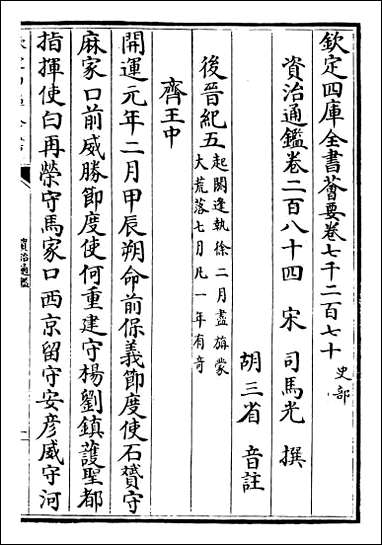 欽定四庫全書薈要卷七千二百七十 史部
資治通鑑卷二百八十四 宋 司馬光 撰
胡三省 音註
後晉紀五 起閼逢執徐二月盡旃蒙
大荒落七月凡一年有奇
齊王中
開運元年二月甲辰朔命前保義節度使石贇守
麻家口前威勝節度使何重建守楊劉鎮護聖都
指揮使白再榮守馬家口西京留守安彥威守河
資治通鑑